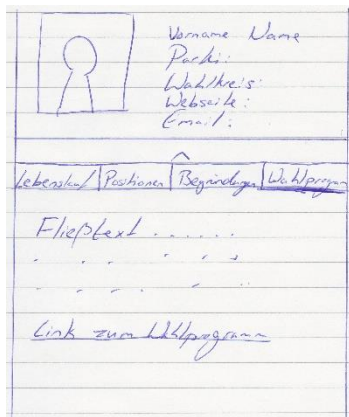 Vorname Name
Partei:
Wahlkreis:
Webseite:
Email:
Lebenslauf Positionen Begründungen Wahlprogramm
Fließtext ......
Link zum Wahlprogramm